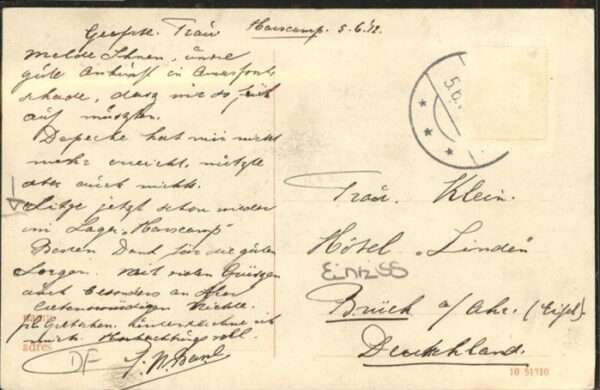 Geehrte Frau Harscamp. 5.6.12.
Melde Ihnen, unsre
gute Ankunft in Amersfoort
schade, dasz wir so früh
auf muszten.
Depeche hat mir nicht
mehr erreicht, nützte
aber auch nichts.
Sitze jetzt schon wieder
im Lager "Harscamp"
Besten Dank für die guten
Sorgen. Mit vielen Grüszen
auch besonders an Ihre
liebenswürdigen Nichte
frl. Gretchen.
mich. Hochachtungsvoll.
adres
DF
5.6.
Frau. Klein.
Hôtel "Linden"
Entz SS
Brück a/Ahr. (Eifel)
Deutschland.
10 51310